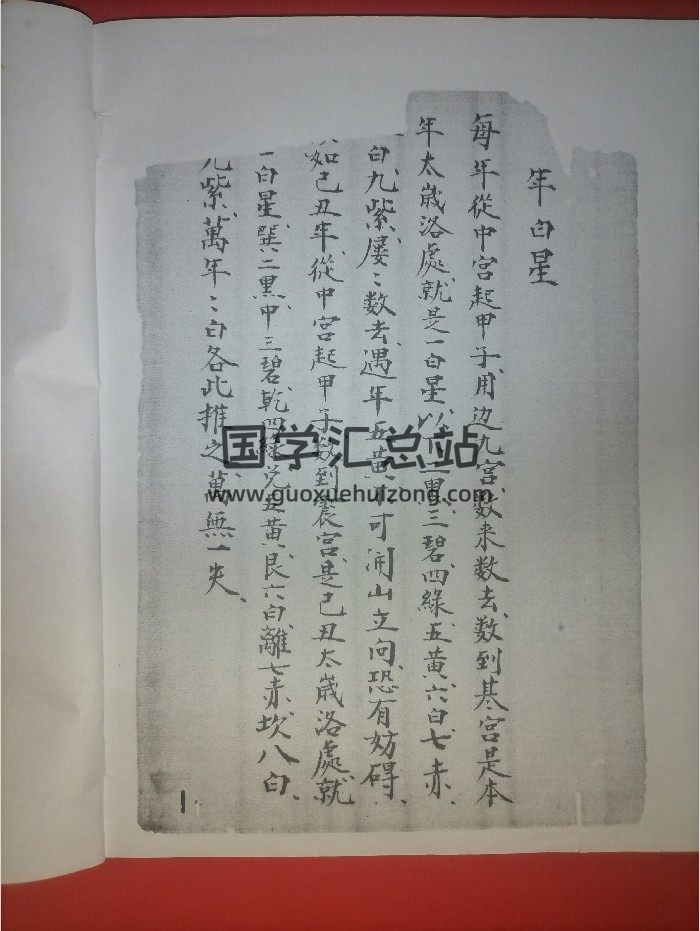 年白星
每年從中宫起甲子用边九宫数来数去数到某宫是本
年太歲洛處就是一白星以下二黑三碧四綠五黄六白七赤
白九紫屡〻数去遇年五黄不可開山立向恐有妨碍
如己丑年從中宫起甲子数到震宫是己丑太歲洛處就
一白星巽二黑中三碧乾四綠兑五黄艮六白離七赤坎八白
九紫萬年〻白各此推之萬無一失
国学汇总站
www.guoxuehuizong.com
1